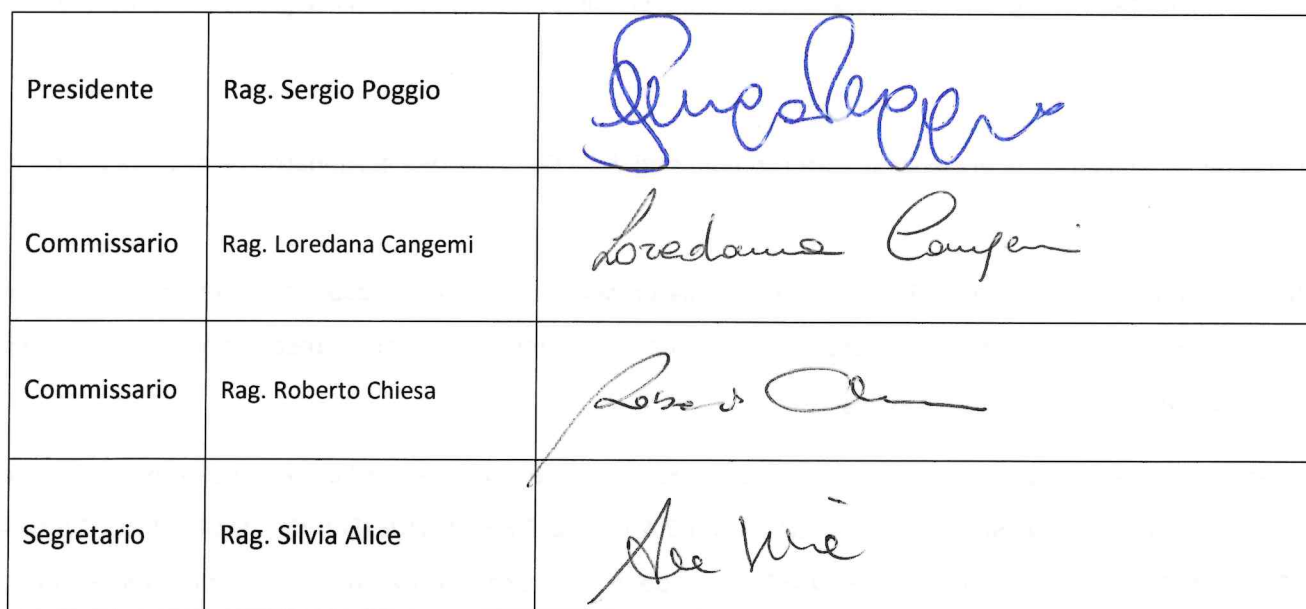 Presidente Rag. Sergio Poggio
Commissario Rag. Loredana Cangemi Loredana Cangemi
Commissario Rag. Roberto Chiesa
Segretario Rag. Silvia Alice